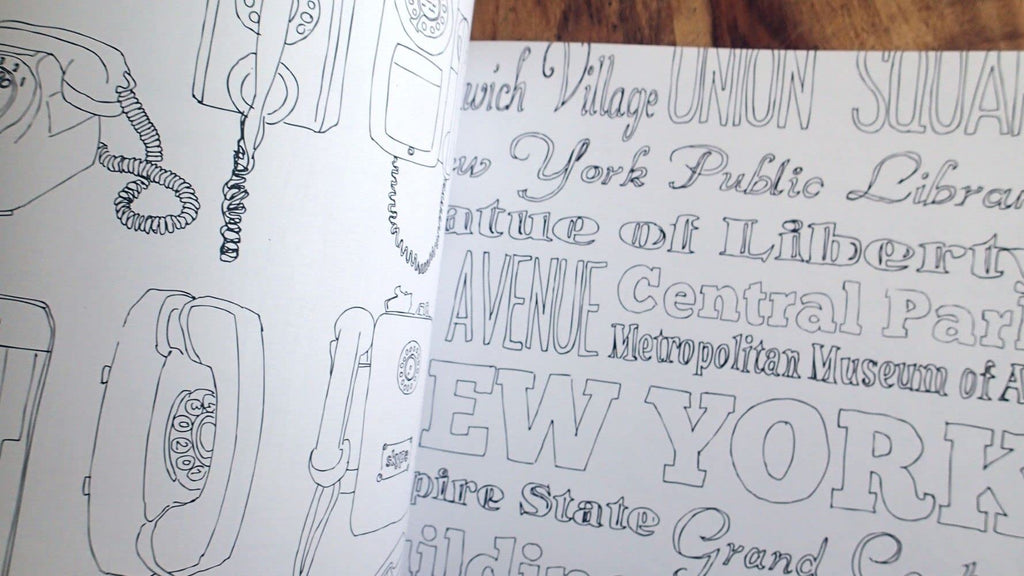 wich Village UNION SQUAR
ew York Public Librar
atue of Liberty
AVENUE Central Park
Metropolitan Museum of A
EW YORK
pire State Grand Ce
uilding
skype